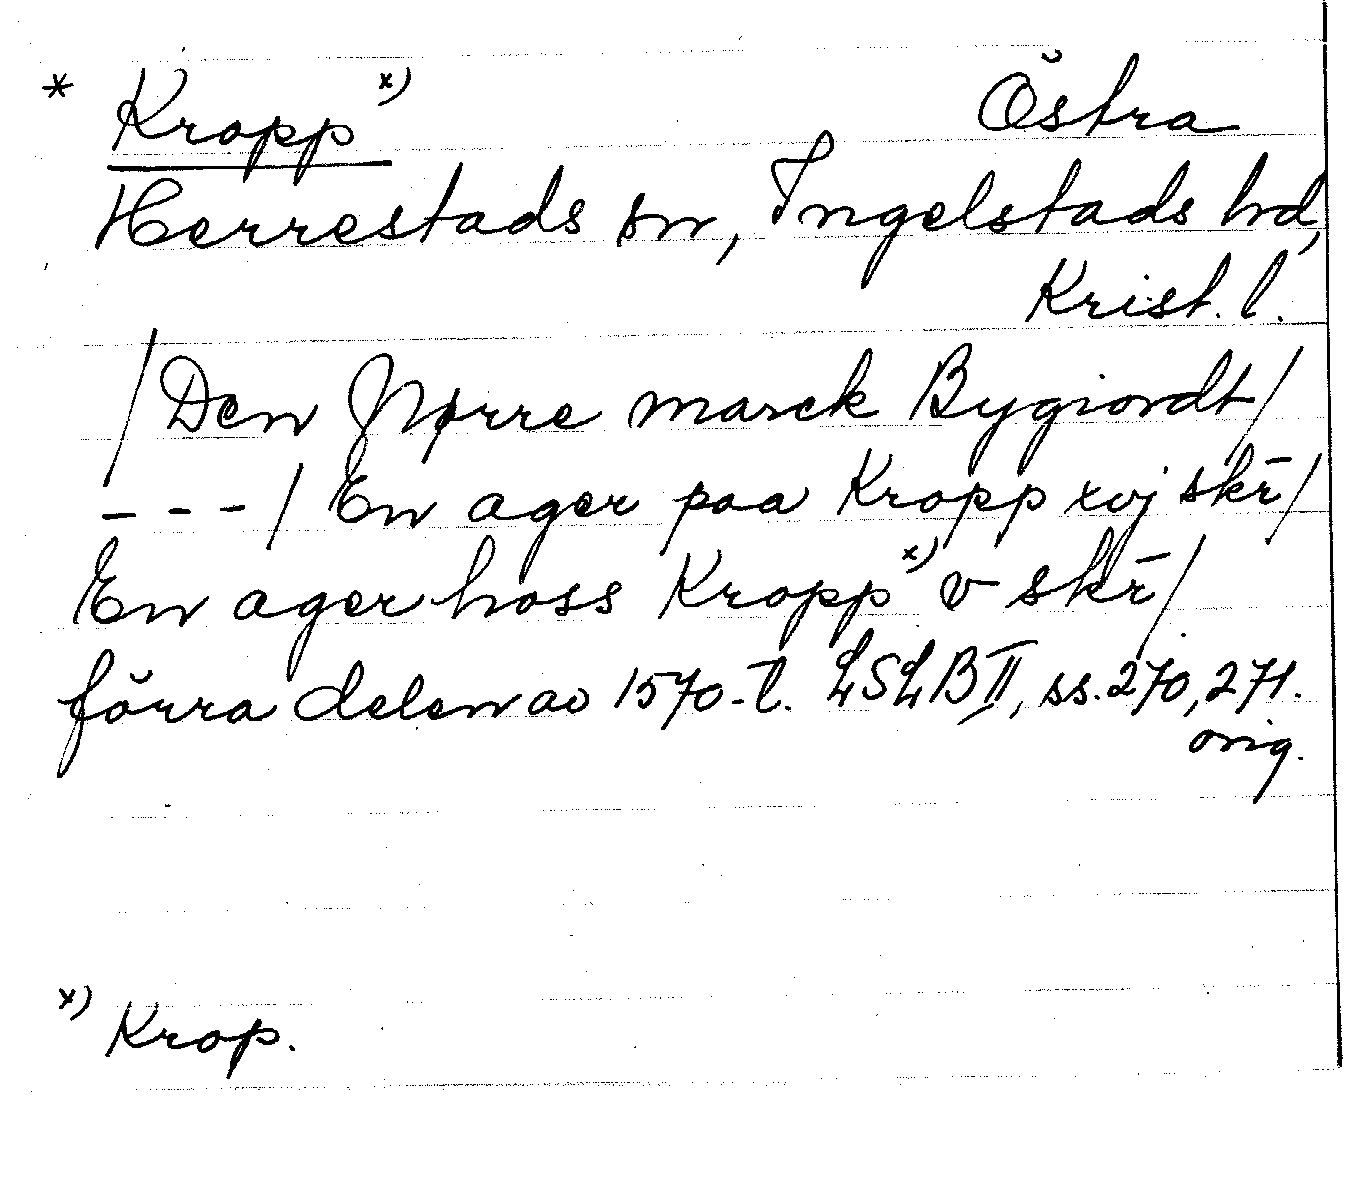 * Kropp x) Östra
Herrestads sn, Ingelstads hd,
Krist. l.
/Den Nørre marck Bygiordt/
---/ En ager paa Kropp xvj skr̄/
En ager hoss Kropp x) v skr̄/
förra delen av 1570-t. LSLB II, ss. 270, 271.
orig.
x) Krop.